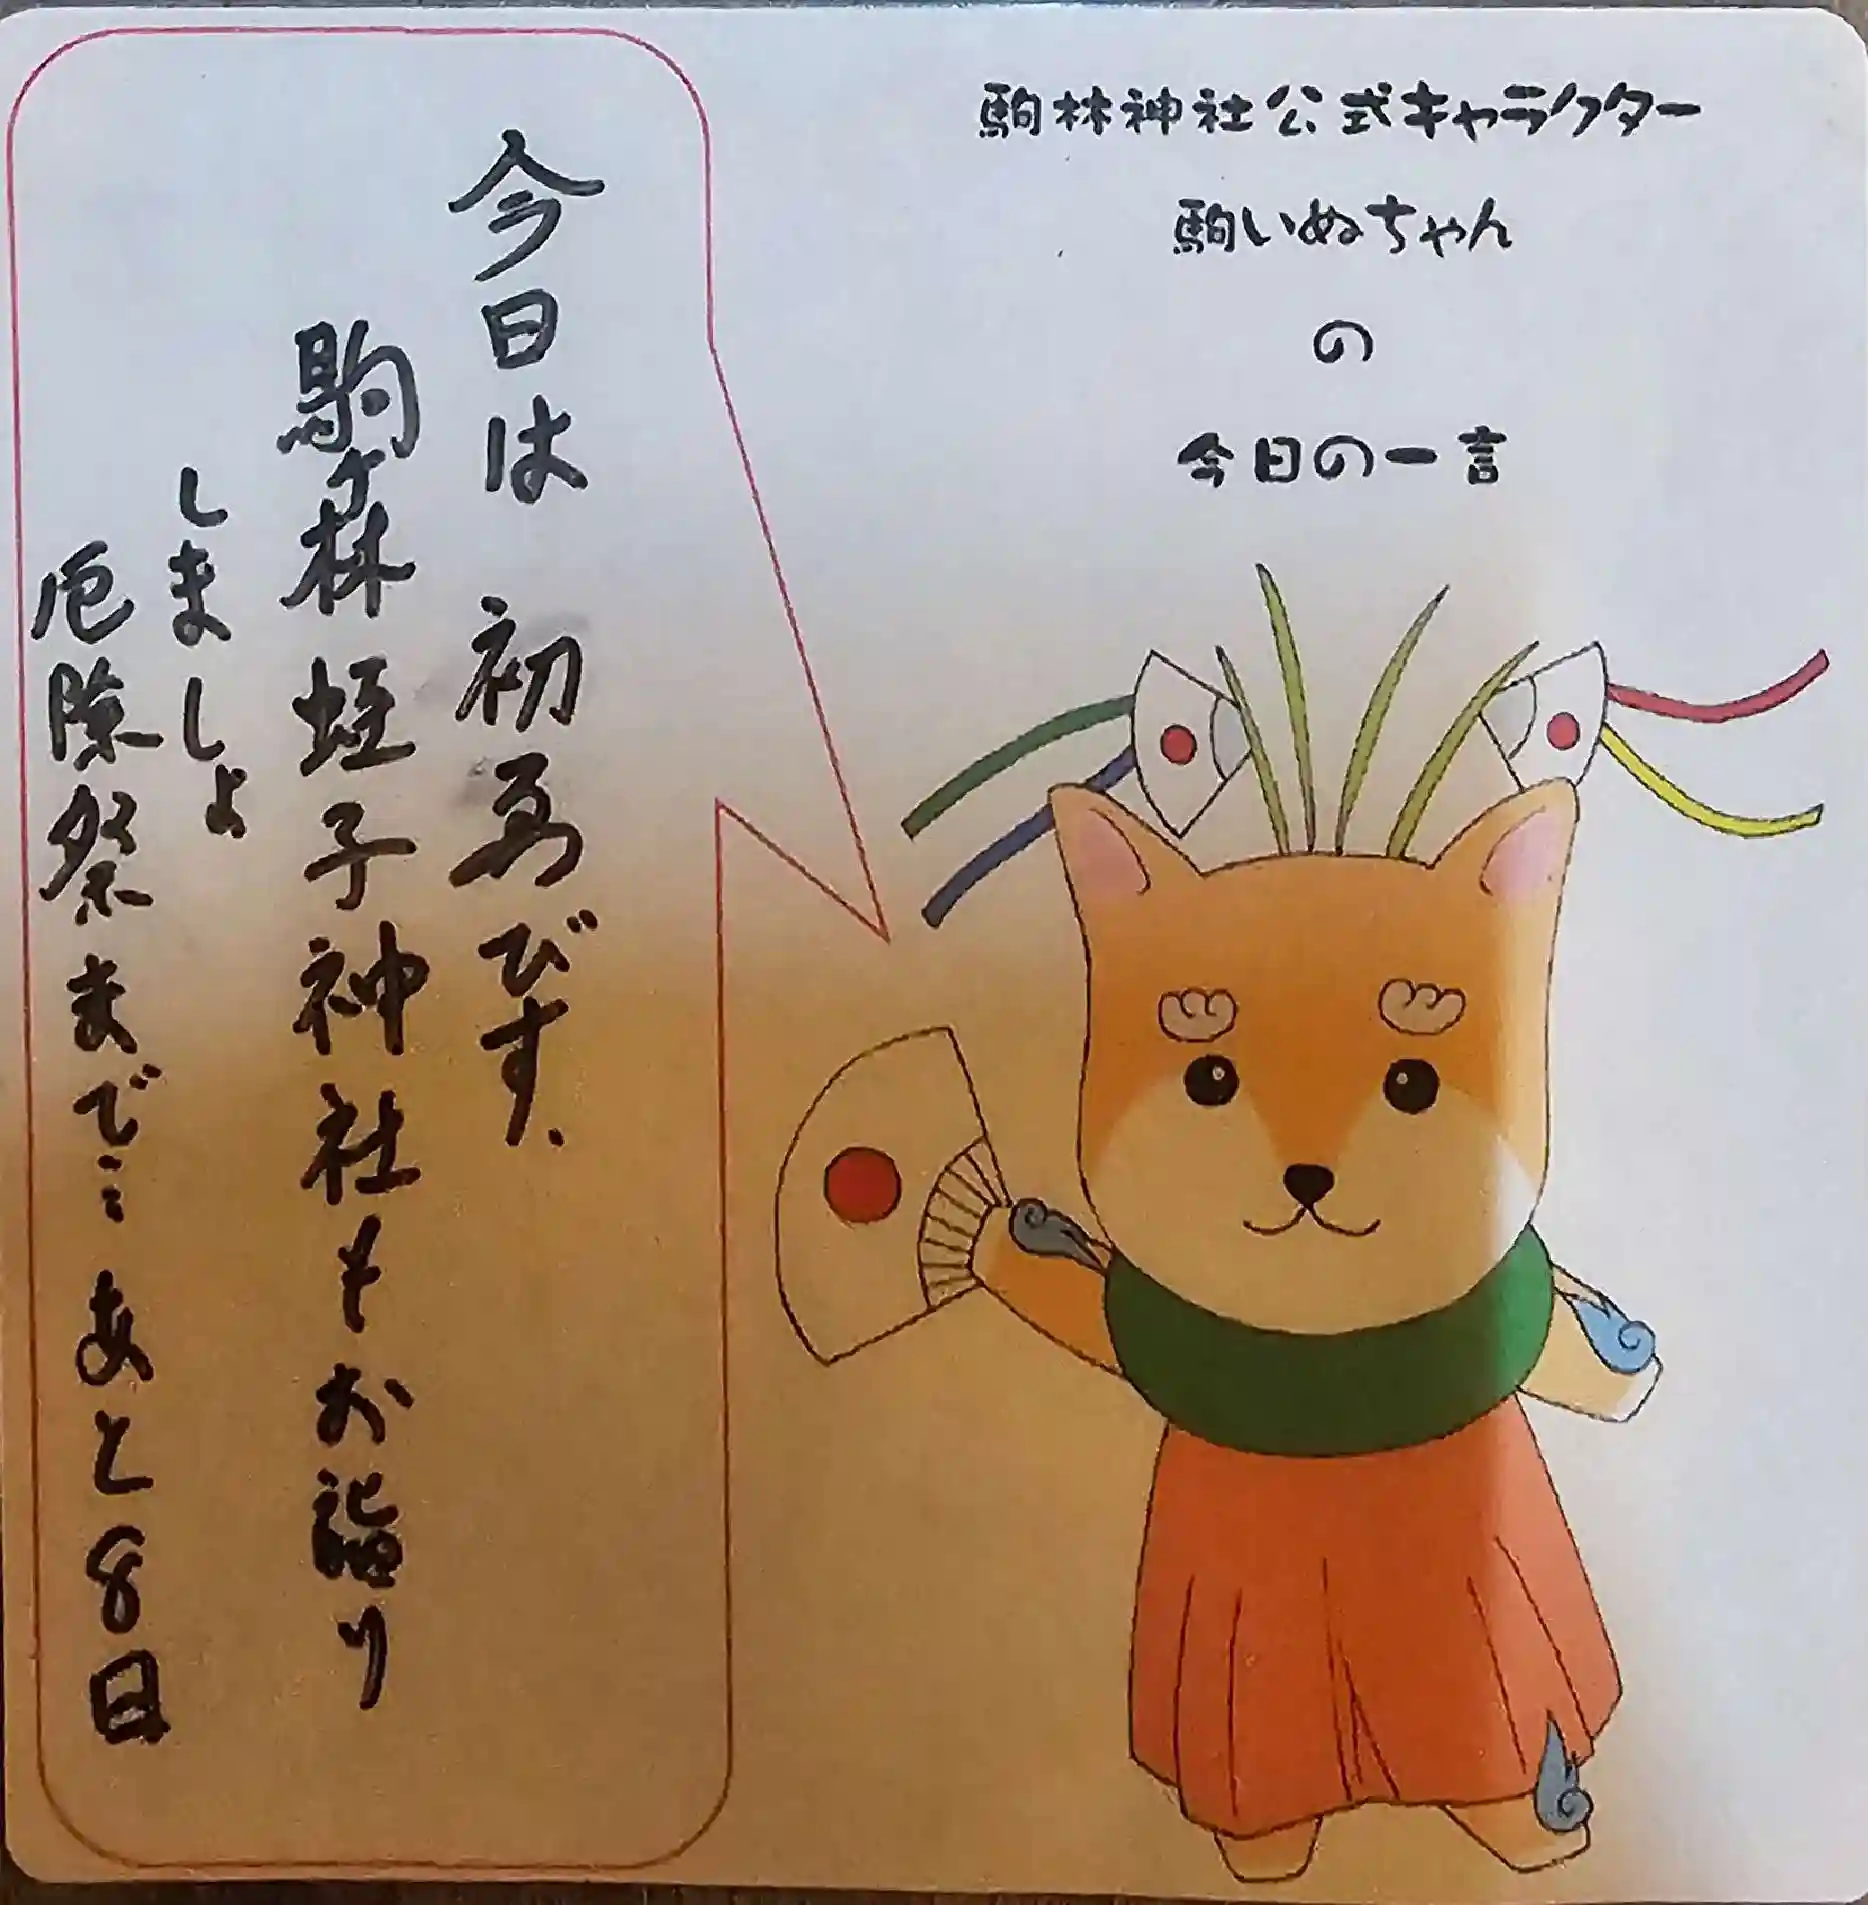 駒林神社公式キャラクター
駒いぬちゃん
の
今日の一言
今日は 初ゑびす、
駒ケ林 蛭子神社もお詣り
しましょ
厄除祭まで…あと8日